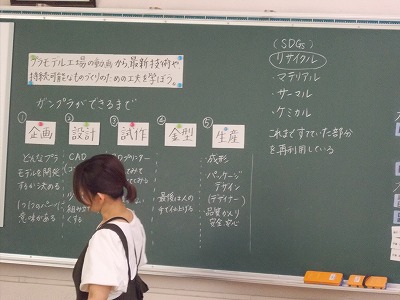 プラモデル工場の動画から最新技術や
持続可能なものづくりのための工夫を学ぼう。
ガンプラができるまで
① 企画
どんなプラ
モデルを開発
するか決める
1つ1つのパーツに
意味がある
② 設計
CAD
組み立て
くする
③ 試作
④ 金型
最後は人の
手で仕上げる
⑤ 生産
・成形
・パッケージ
デザイン
(デザイナー)
・品質
安全、安心
(SDGs)
リサイクル
・マテリアル
・サーマル
・ケミカル
これまですてていた部分
を再利用している